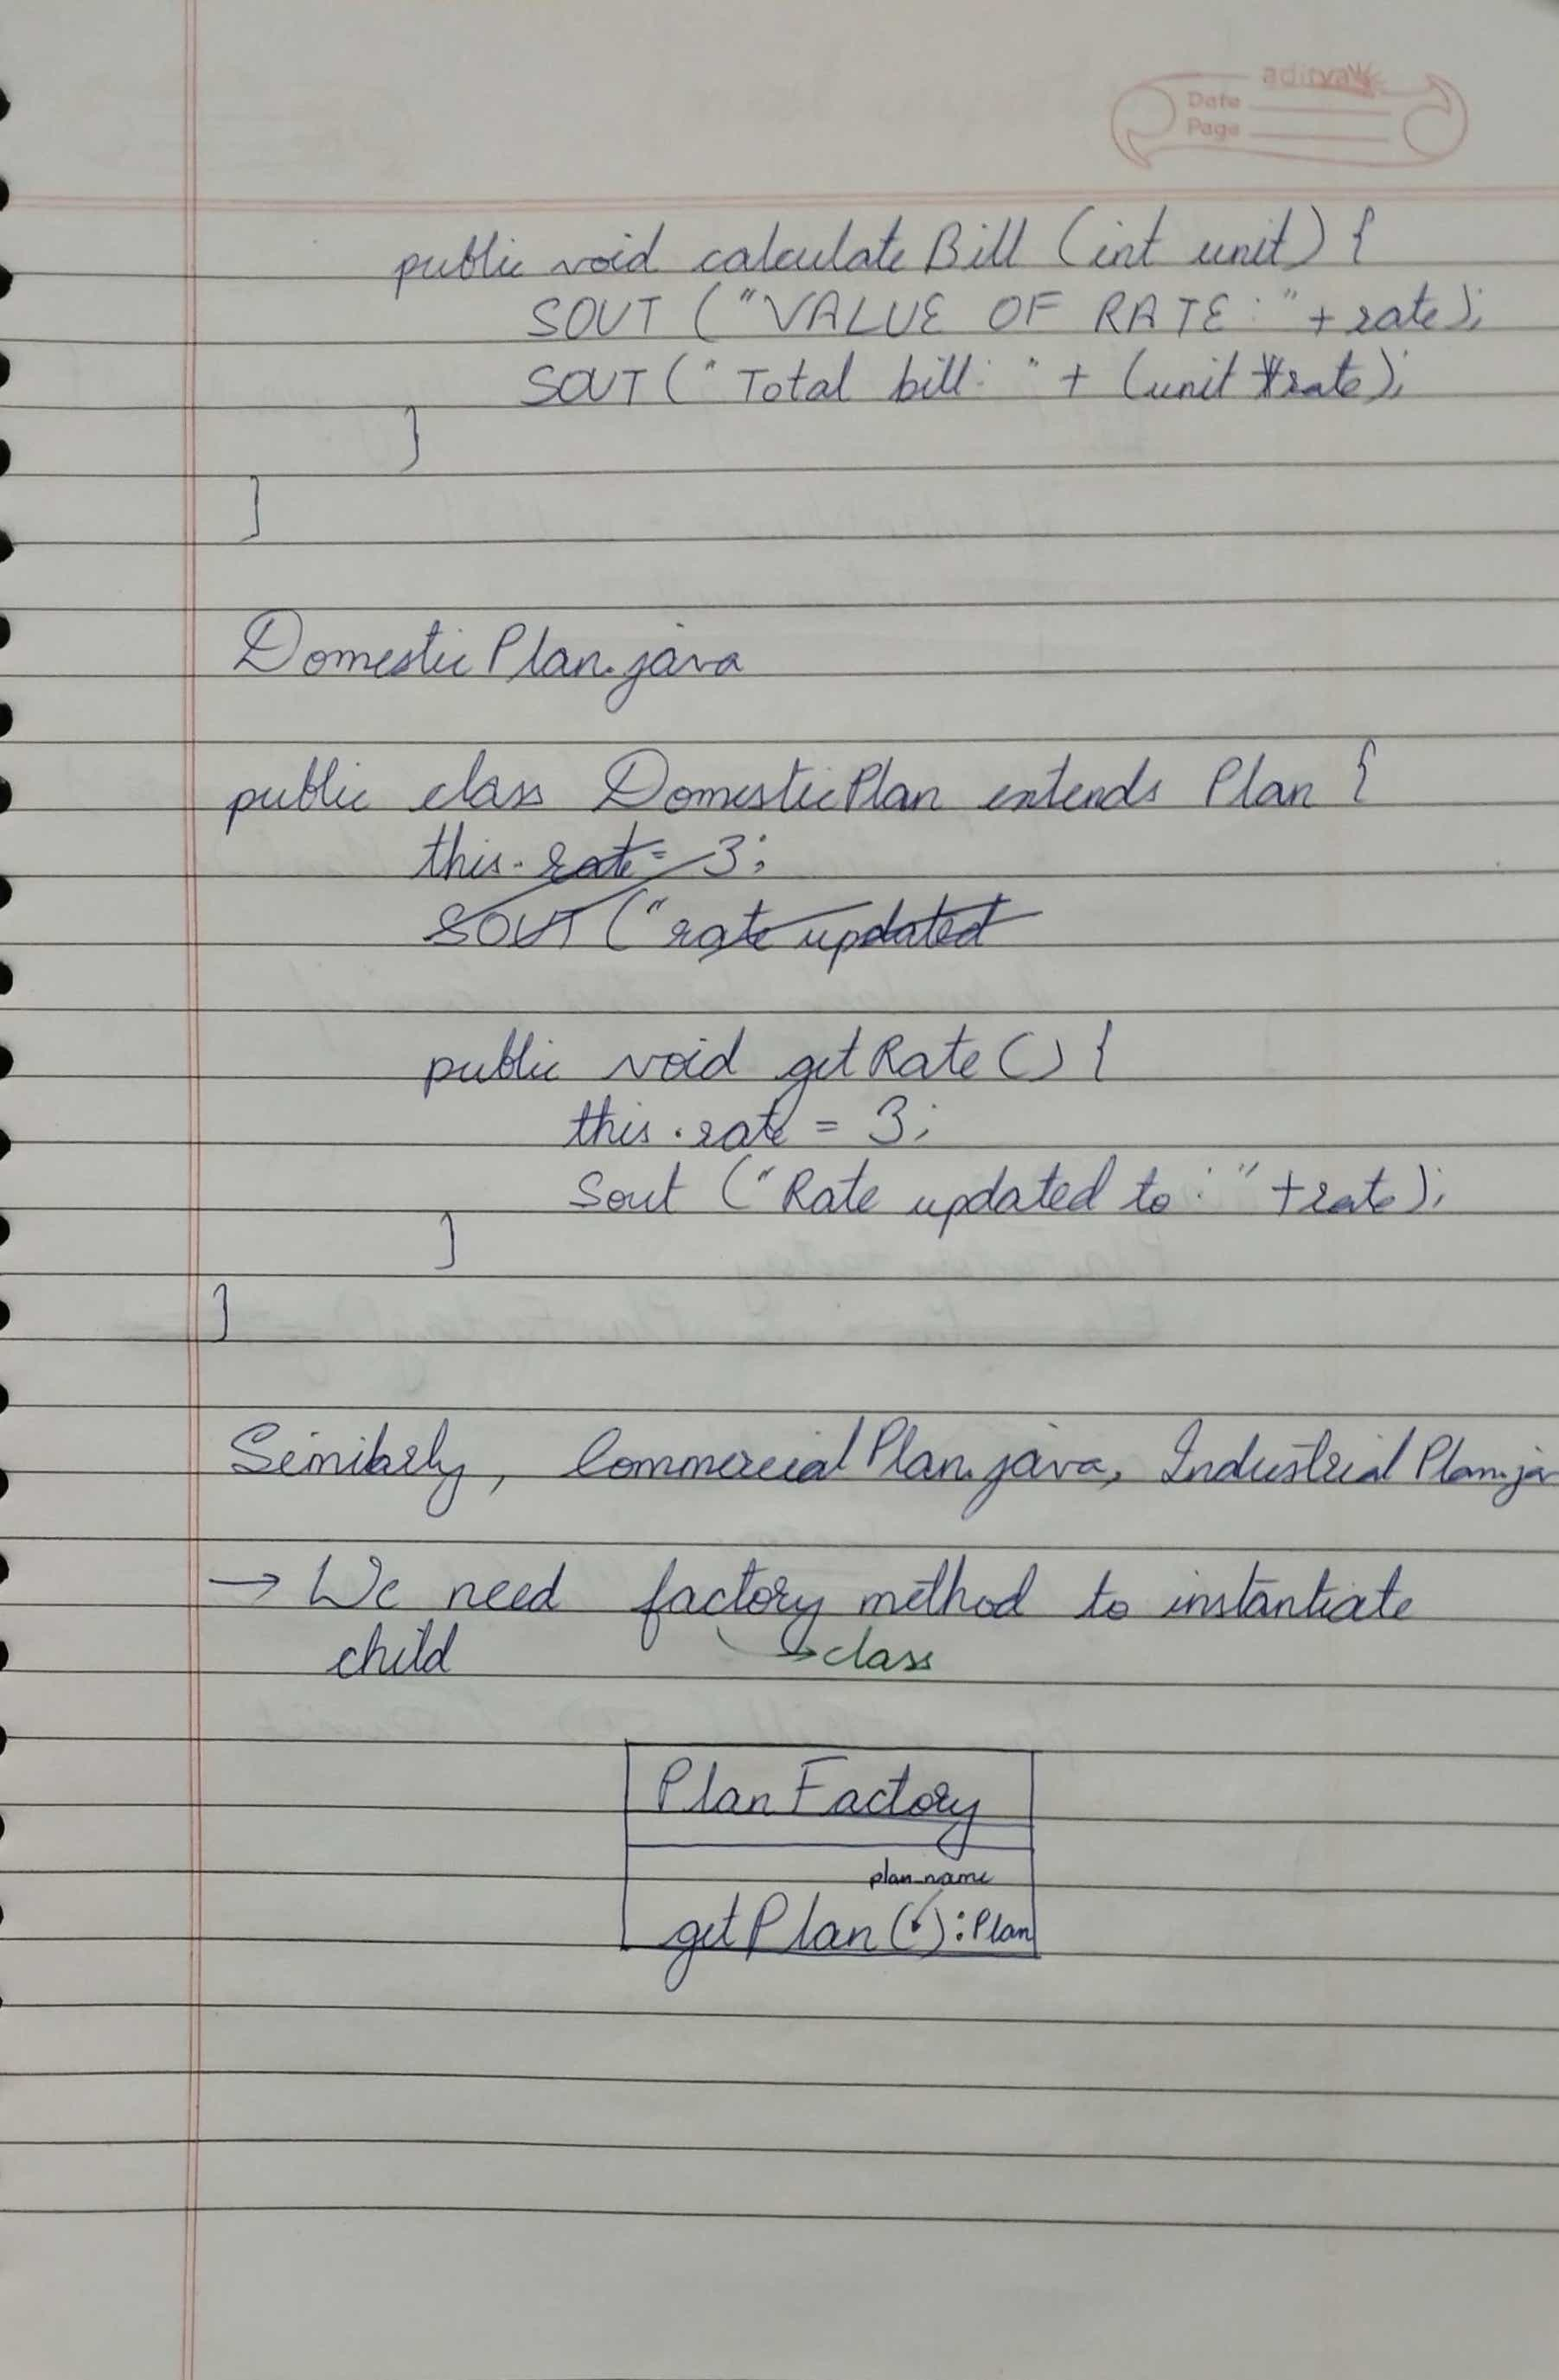 aditya
Date
Page
public void calculateBill (int unit) {
SOUT ("VALUE OF RATE : " + rate);
SOUT (" Total bill : " + (unit * rate);
}
}
DomesticPlan.java
public class DomesticPlan extends Plan {
this.rate = 3;
SOUT ("rate updated
public void getRate () {
this.rate = 3;
Sout ("Rate updated to : " + rate);
}
}
Similarly, CommercialPlan.java, IndustrialPlan.ja
→ We need factory method to instantiate
child → class
PlanFactory
plan_name
getPlan ( ) : Plan